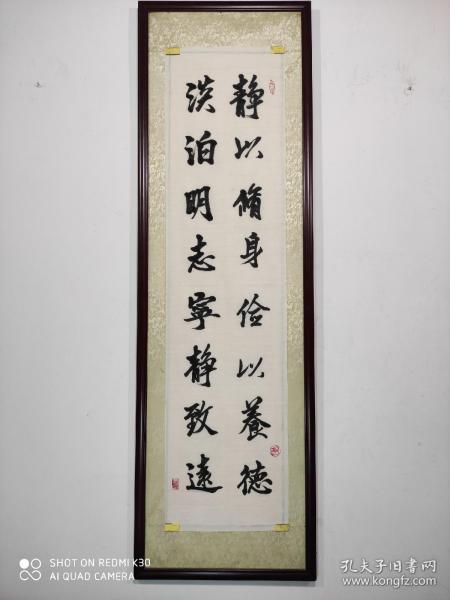 静以脩身俭以養德
淡泊明志寧静致遠
SHOT ON REDMI K30
AI QUAD CAMERA
孔夫子旧书网
www.kongfz.com